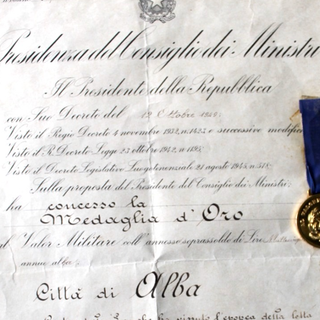 Presidenza del Consiglio dei Ministri
Il Presidente della Repubblica
con Suo Decreto del
Visto il Regio Decreto 4 novembre 1932, n. 1423 e successive
Visto il R. Decreto Legge 23 ottobre 1942, n. 1195
Visto il Decreto Legislativo Luogotenenziale 21 agosto 1945, n. 518
Sulla proposta del Presidente del Consiglio dei Ministri
ha concesso la
Medaglia d'Oro
al Valor Militare coll'annesso soprassoldo di Lire
annue alla
Città di Alba